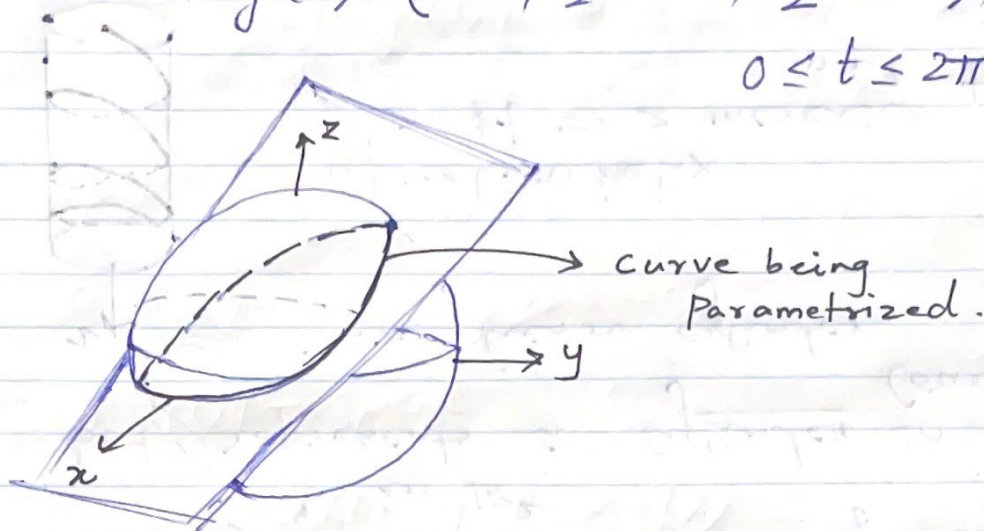 0 ≤ t ≤ 2π
z
curve being
Parametrized.
y
x